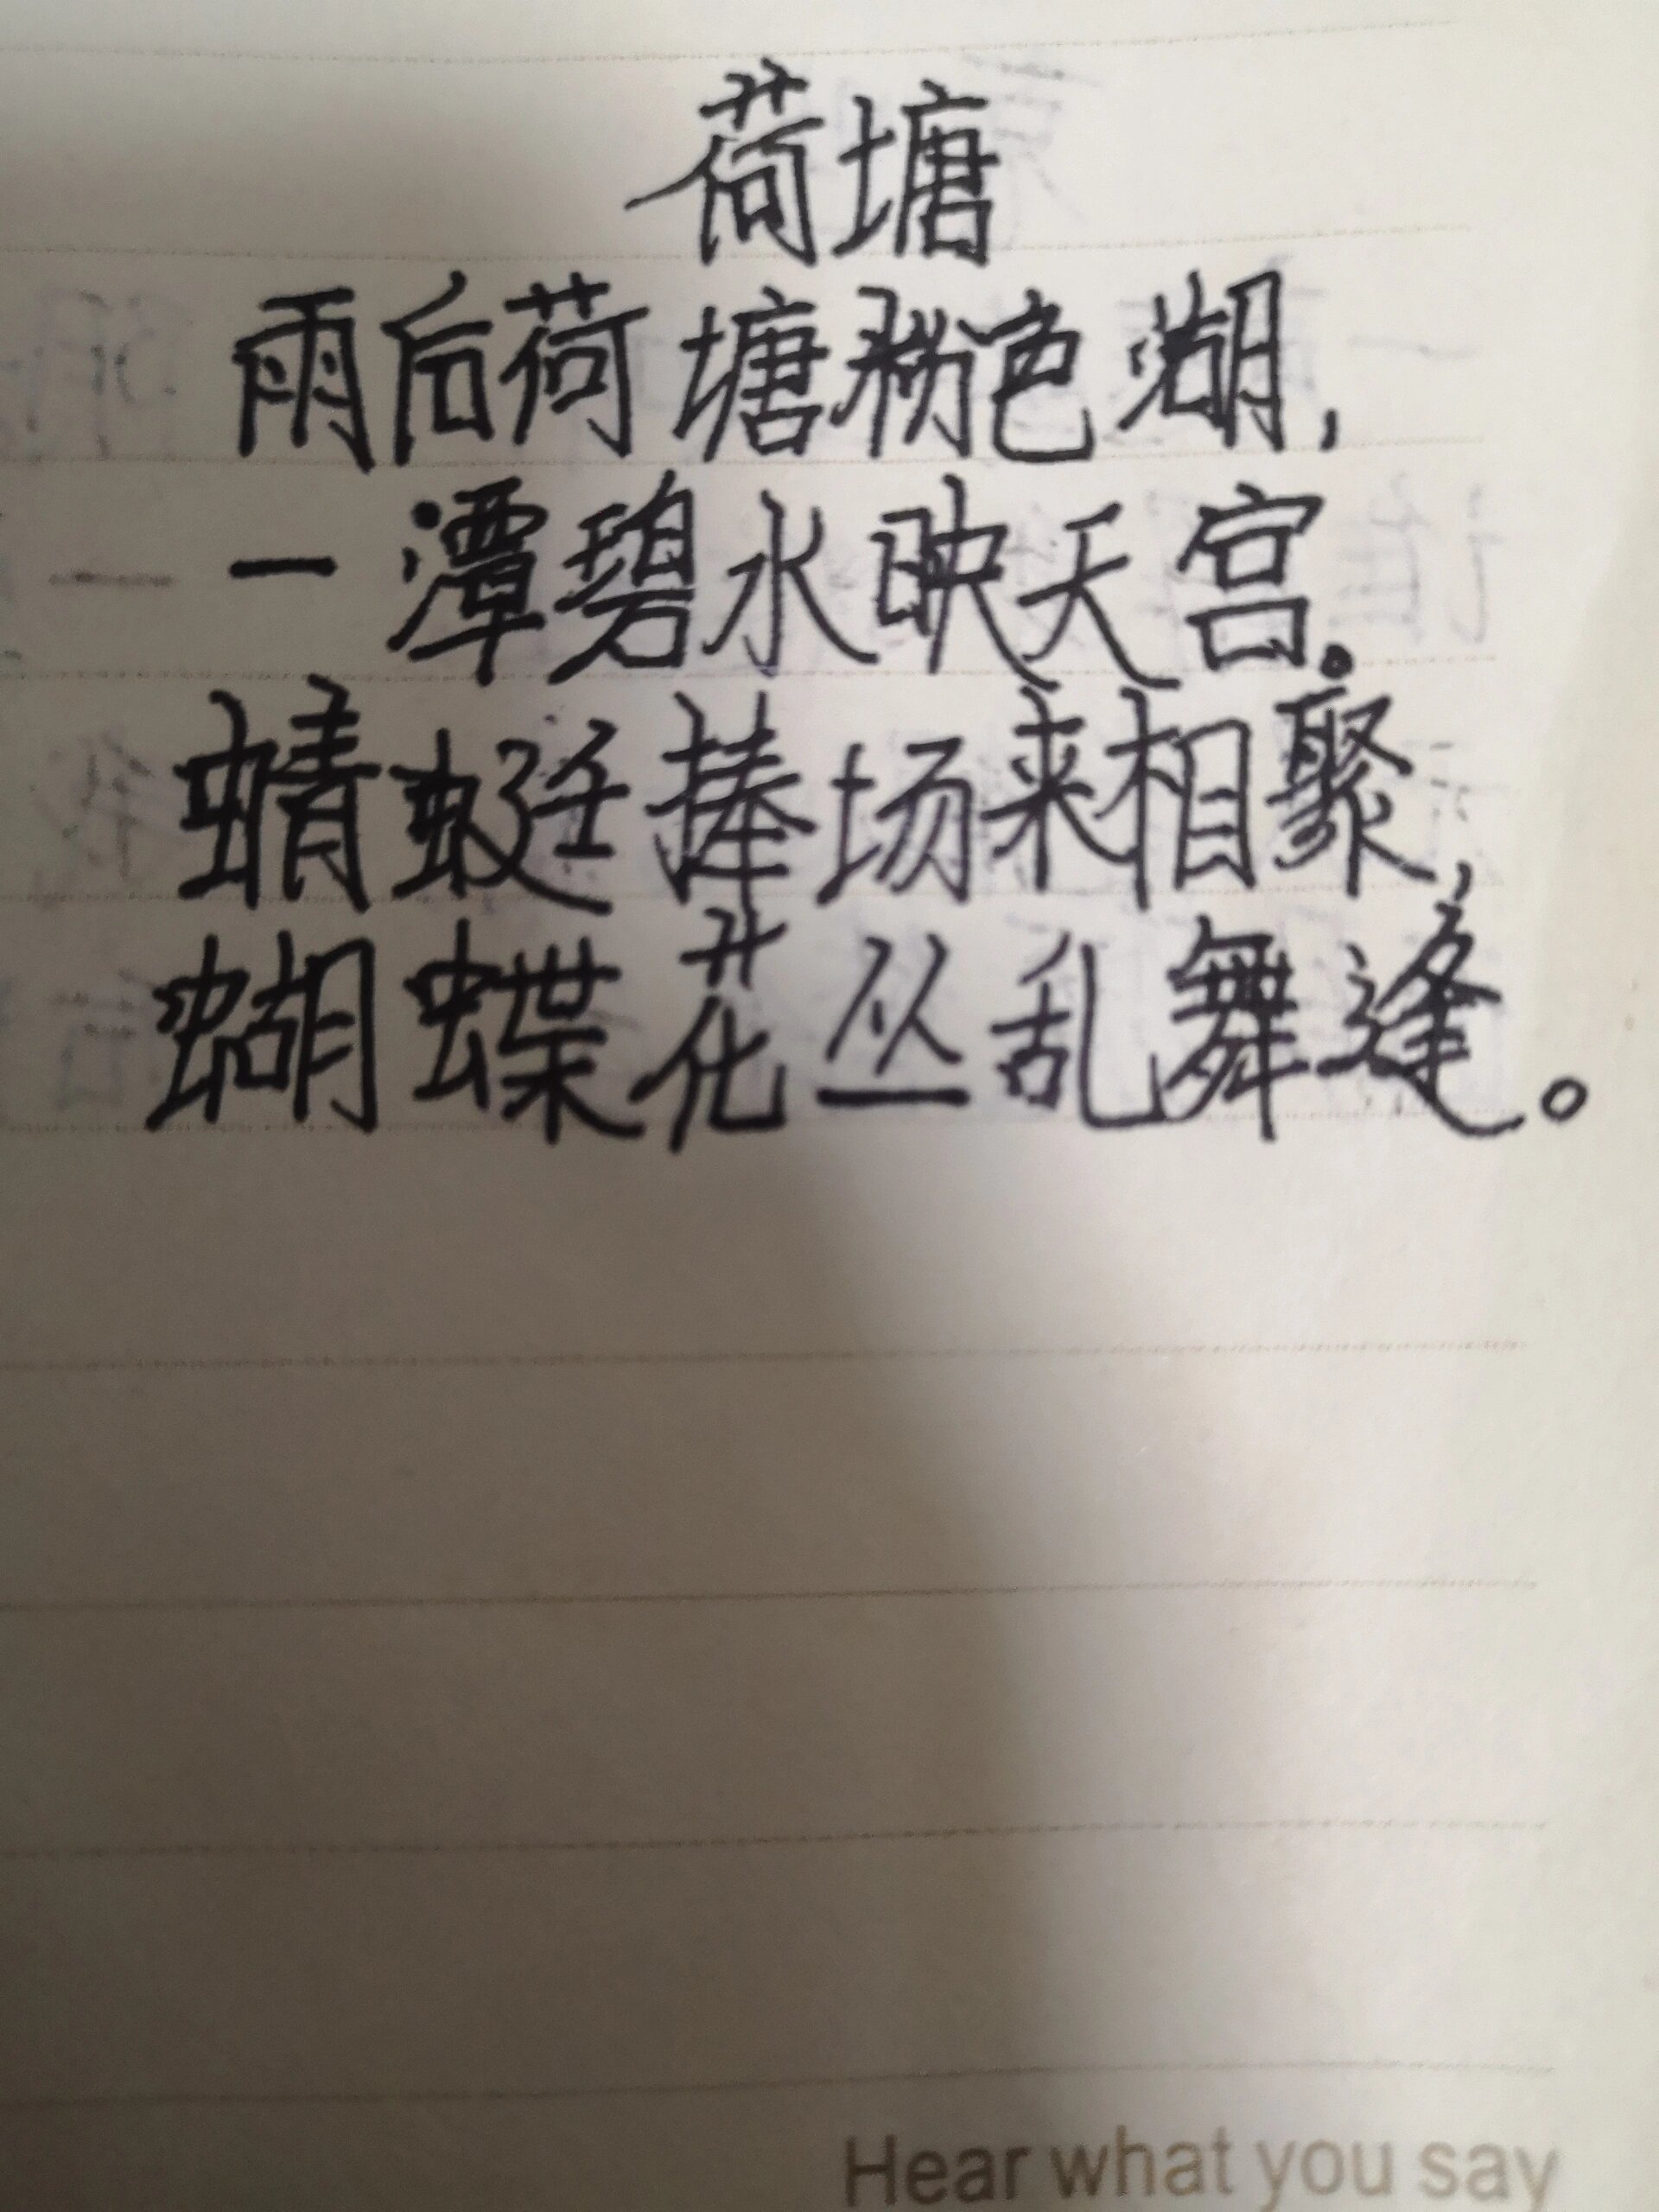 荷塘
雨后荷塘粉色湖,
一潭碧水映天宫。
蜻蜓捧场来相聚,
蝴蝶花丛乱舞逢。
Hear what you say